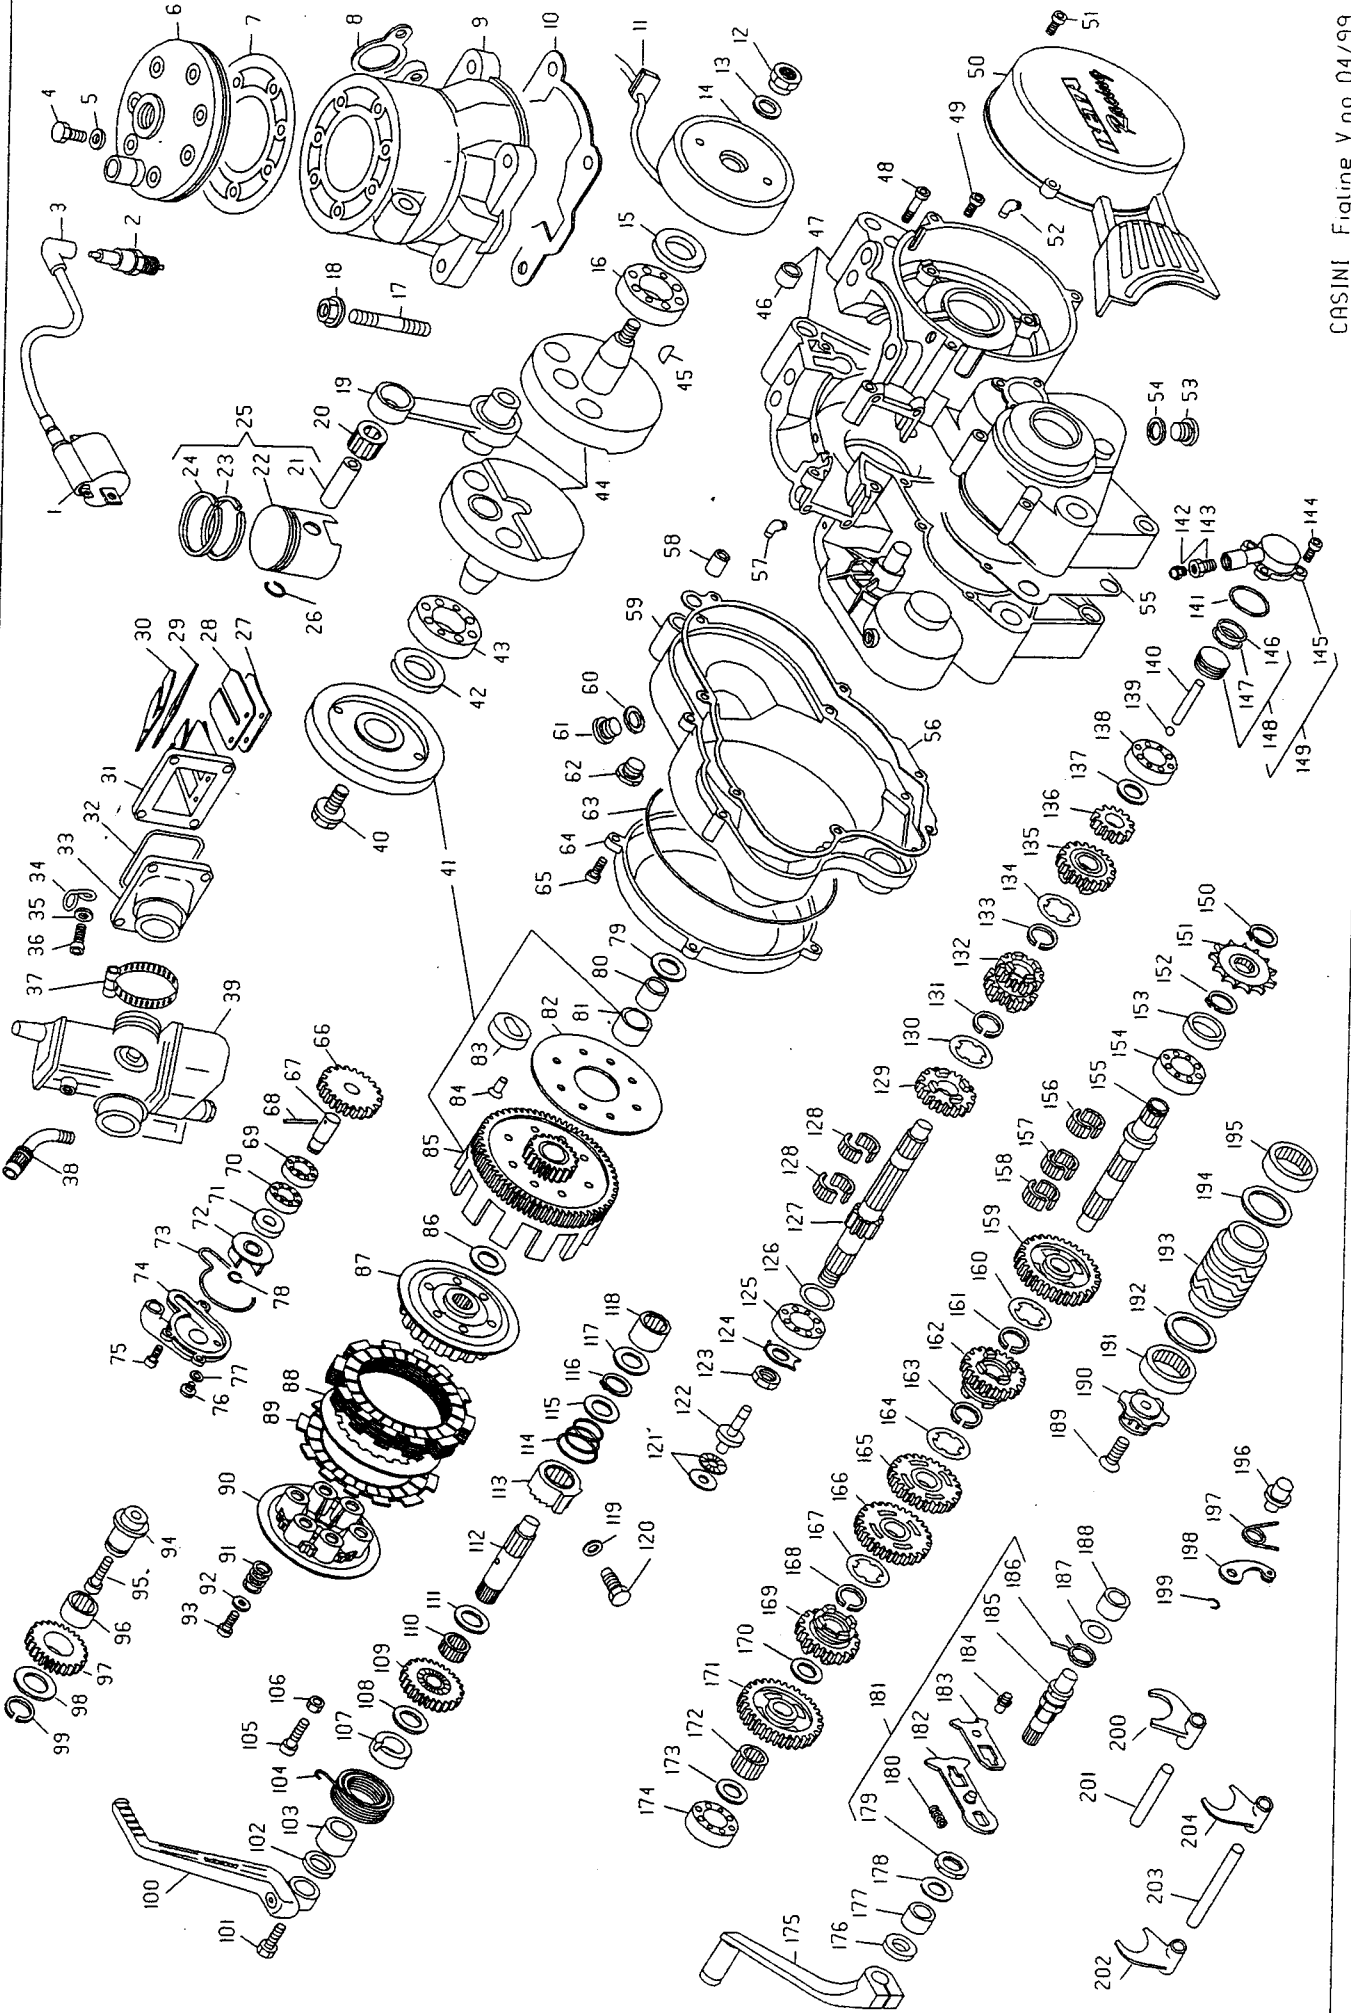 1
2
3
4
5
6
7
8
9
10
11
12
13
14
15
16
17
18
19
20
21
22
23
24
25
26
27
28
29
30
31
32
33
34
35
36
37
38
39
40
41
42
43
44
45
46
47
48
49
50
51
52
53
54
55
56
57
58
59
60
61
62
63
64
65
66
67
68
69
70
71
72
73
74
75
76
77
78
79
80
81
82
83
84
85
86
87
88
89
90
91
92
93
94
95
96
97
98
99
100
101
102
103
104
105
106
107
108
109
110
111
112
113
114
115
116
117
118
119
120
121
122
123
124
125
126
127
128
128
129
130
131
132
133
134
135
136
137
138
139
140
141
142
143
144
145
146
147
148
149
150
151
152
153
154
155
156
157
158
159
160
161
162
163
164
165
166
167
168
169
170
171
172
173
174
175
176
177
178
179
180
181
182
183
184
185
186
187
188
189
190
191
192
193
194
195
196
197
198
199
200
201
202
203
204
Racing
CASINI Figline V.no 04/99